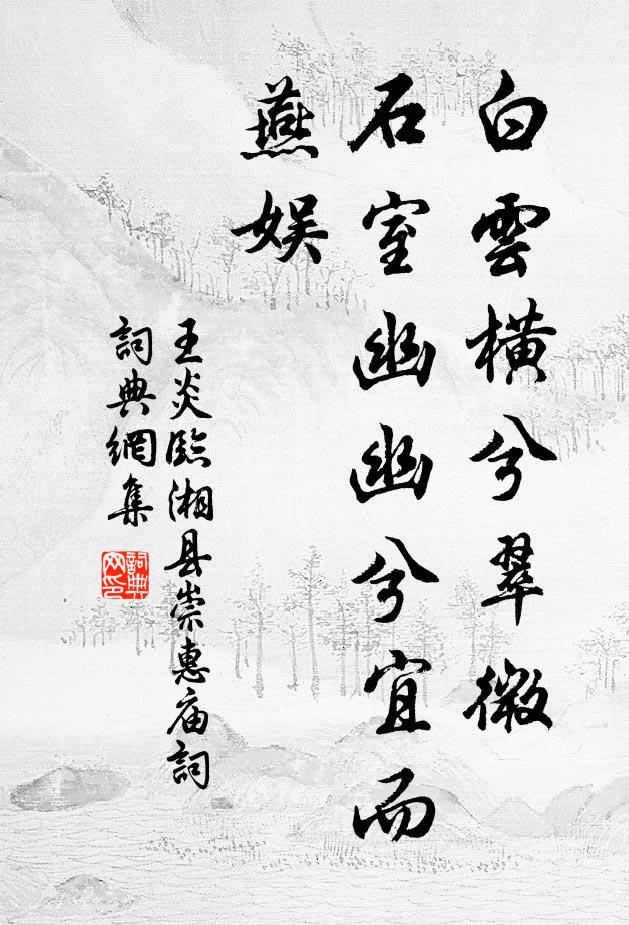 白雲橫兮翠微
石室幽幽兮宜而
燕娛
王炎臨湘县崇惠庙詞
詞典網集
詞典
网印